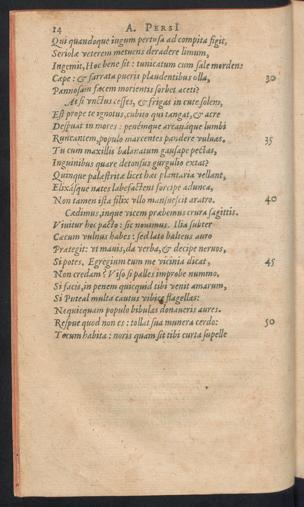 14 A. PERSI
Qui quandoque iugum pertusa ad compita figit,
Seriolæ veterem metuens deradere limum,
Ingemit, Hoc bene sit: tunicatum cum sale mordens
Cæpe: & farrata pueris plaudentibus olla, 30
Pannosam fæcem morientis sorbet aceti?
At si vnctus cesses, & frigas in cute solem,
Est prope te ignotus, cubito qui tangat, & acre
Despuat in mores: penémque arcanáque lumbi
Runcantem, populo marcentes pandere vuluas. 35
Tu cum maxillis balanatum gausape pectas,
Inguinibus quare detonsus gurgulio extat?
Quinque palæstritæ licet hæc plantaria vellant,
Elixásque nates labefactent forcipe adunca,
Non tamen ista filix vllo mansuescit aratro. 40
Cædimus, inque vicem præbemus crura sagittis.
Viuitur hoc pacto: sic nouimus. Ilia subter
Cæcum vulnus habes: sed lato balteus auro
Prætegit: vt mauis, da verba, & decipe neruos,
Si potes. Egregium cum me vicinia dicat, 45
Non credam? Viso si palles improbe nummo,
Si facis, in penem quicquid tibi venit amarum,
Si Puteal multa cautus vibice flagellas:
Nequicquam populo bibulas donaueris aures.
Respue quod non es: tollat sua munera cerdo: 50
Tecum habita: noris quam sit tibi curta supelle